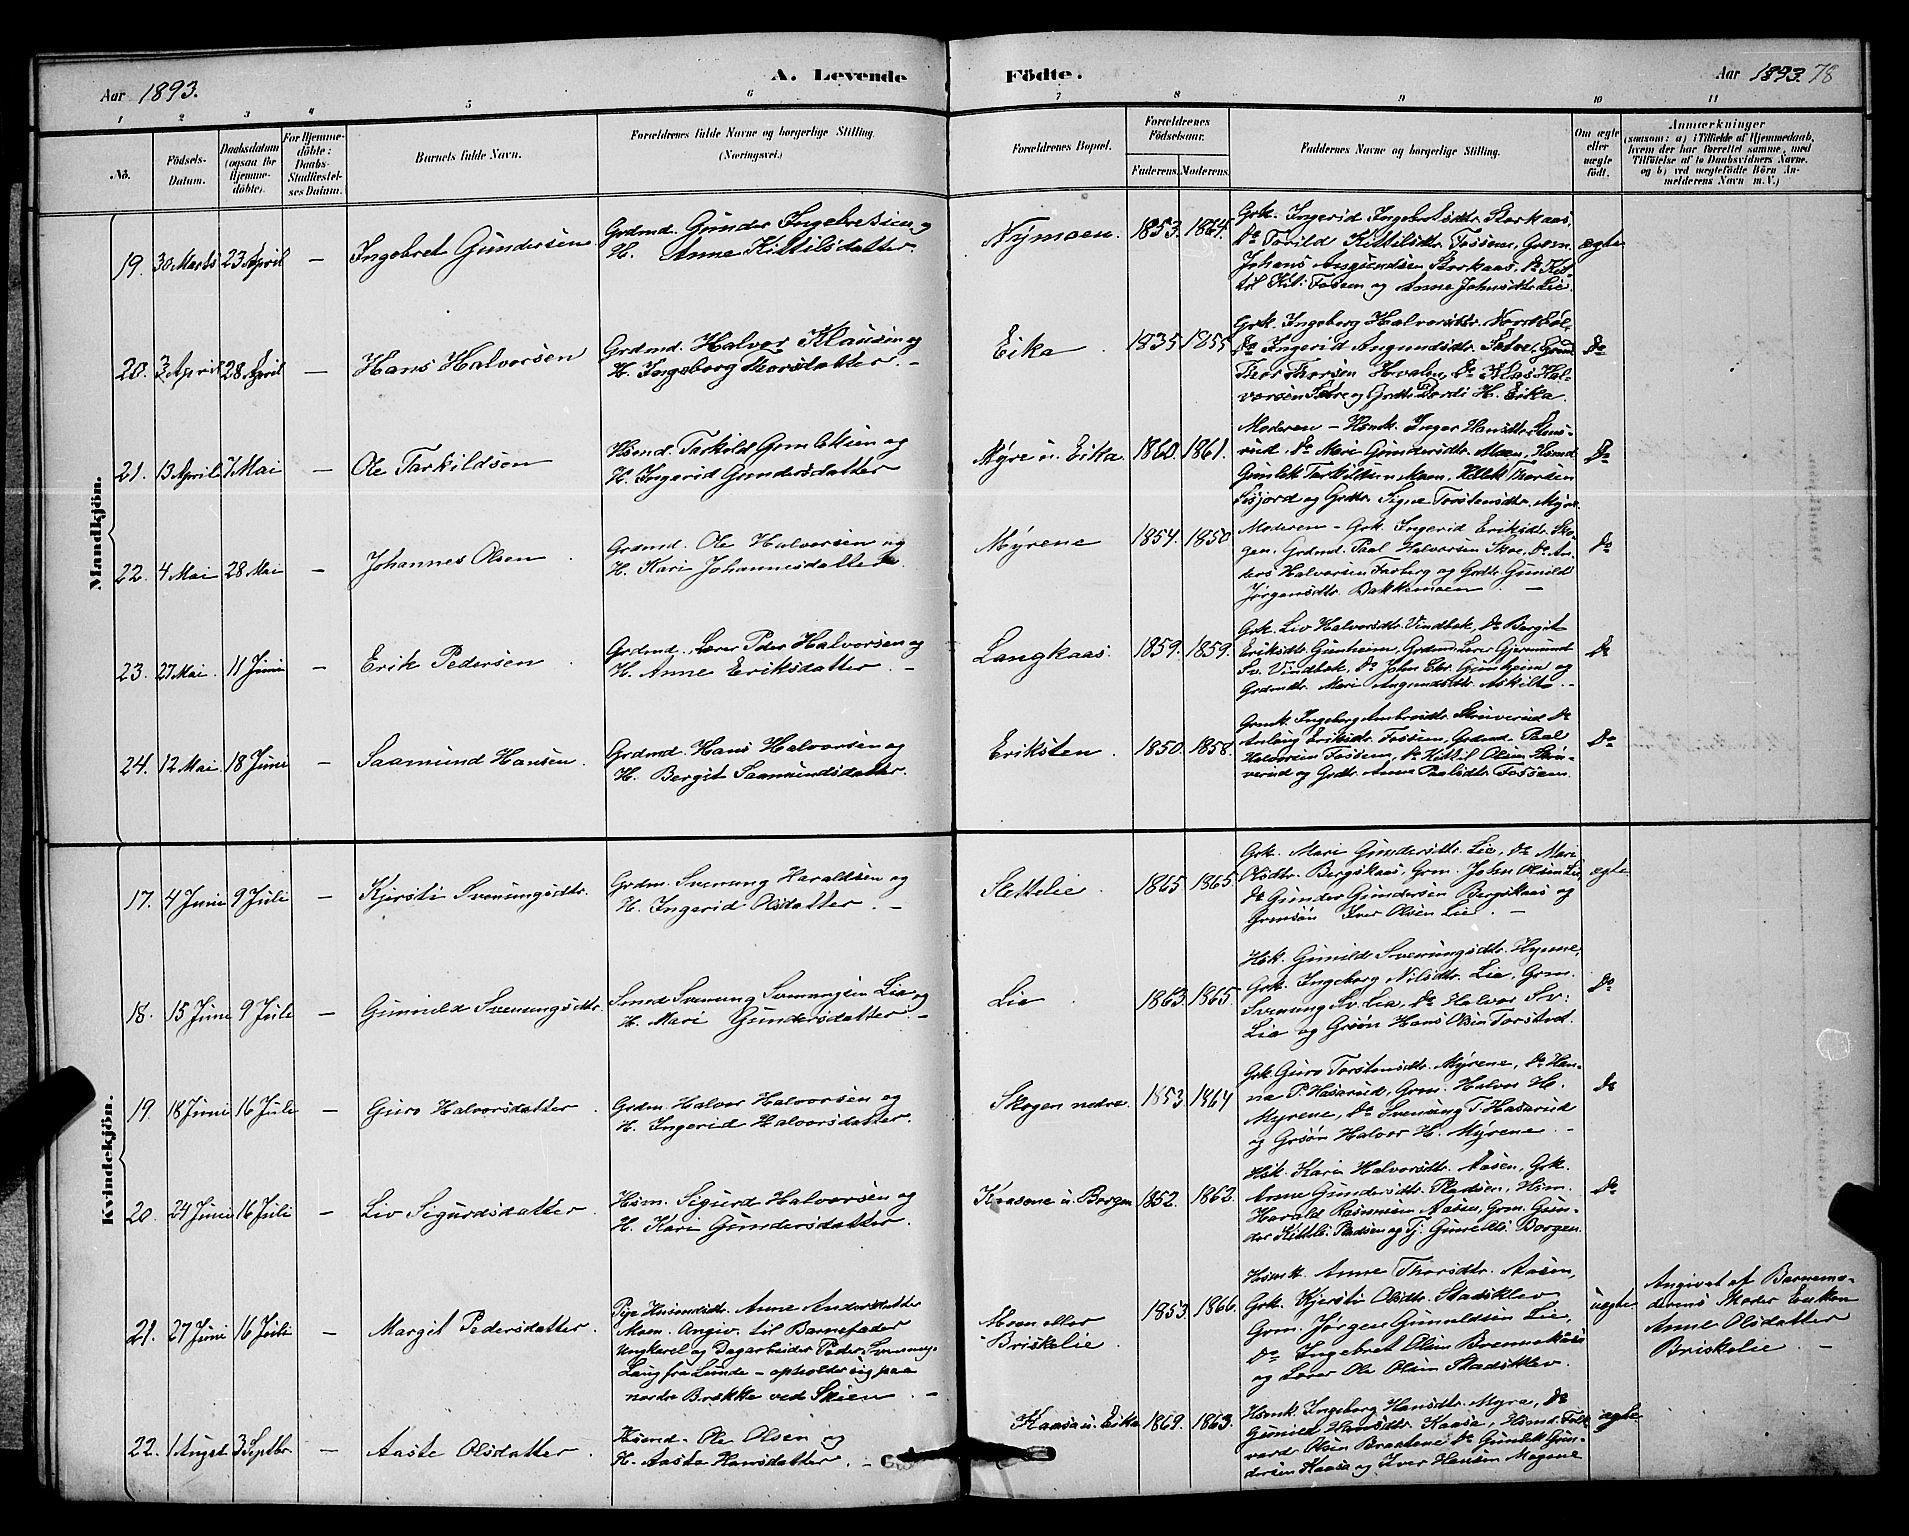 Aar 1893.
A. Levende Födte.
Aar 1893. 78
1 2 3 4 5 6 7 8 9 10 11
No.
Födsels-Datum.
Daabsdatum (ogsaa for Hjemmedöbte).
For Hjemmedöbte: Daabs-Stadfæstelses Datum.
Barnets fulde Navn.
Forældrenes fulde Navne og borgerlige Stilling. (Næringsvei.)
Forældrenes Bopæl.
Forældrenes Födselsaar.
Faderens. Moderens.
Faddernes Navne og borgerlige Stilling.
Om ægte eller uægte födt.
Anmærkninger
(saasom: a) i Tilfælde af Hjemmedaab,
hvem der har forrettet samme, med
Tilföielse af to Daabsvidners Navne.
og b) ved uægtefödte Börn Anmelderens Navn m.V.)
Mandkjön.
19. 30 Marts 23 April — Ingebret Gundersen
Grdmd. Gunder Ingebretsen og
H. Anne Kittilsdatter
Nymoen. 1853. 1864.
Grk. Ingerid Ingebretsdtr. Storkaas,
Do Torild Kittilsdtr. Fossem, Grm.
Johans Amundsen Storkaas, Do Kit-
til Kit: Fossem og Anne Johnsdtr Lie.
ægte
20. 3 April 28 April — Hans Halvorsen
Grdmd. Halvor Klausen og
H. Ingeborg Thorsdatter. —
Eika. 1835 1855
Grk. Ingeborg Halvorsdtr. Nordbøl,
Do Ingerid Amundsdtr. Satve, Grmd
Thor Thorsen Hvalen, Do Klas Hal-
vorsen og Grdtr. Dordi H. Eika.
Do
21. 13 April 7 Mai — Ole Tarkildsen
Hsmd. Tarkild Gunleksen og
H. Ingerid Gundersdatter
Myre u. Eika 1860. 1861.
Moderen — Hsmk. Inger Hansdtr. Stens-
rud, Do Mari Gundersdtr. Moen, Hsmd
Gunlek Tarkildsen Moen, Kittil Thorsen
og Grdtr. Signe Torstensdtr. Myre
Do
22. 4 Mai 28 Mai — Johannes Olsen.
Grdmd. Ole Halvorsen og
H. Kari Johannesdatter
Myrene 1854. 1850
Moderen — Grk. Ingerid Eriksdtr. Sko-
gen, Grdmd. Paal Halvorsen Skoe, Do An-
ders Halvorsen Forberg og Grdtr. Gunild
Jørgensdtr. Bakkemoen. —
Do
23. 27 Mai. 11 Juni — Erik Pedersen.
Grdmd. Lærer Peder Halvorsen og
H. Anne Eriksdatter. —
Langkaas. 1859. 1859.
Grk. Liv Halvorsdtr. Vindbæk, Do Bergit
Eriksdtr. Gunheim, Grdmd Lærer Gjermund
Sv. Vindbæk, Do John Chr. Gunheim og
Grdmdtr. Mari Amundsdtr. Askilt. —
Do
24. 12 Mai 18 Juni — Saamund Hansen.
Grdmd. Hans Halvorsen og
H. Bergit Saamundsdatter.
Eriksten. 1850. 1858.
Grmk. Ingeborg Ambrosdtr. Skruverud Do
Anlaug Eriksdtr. Fossem, Grdmd. Paal
Halvorsen Fossem, Do Kittil Olsen Skru-
verud og Grdtr. Anne Paalsdtr. Fossem.
Do
Kvindekjön.
17. 4 Juni 9 Juli — Kjersti Svenungsdtr.
Grdm. Svenung Haraldsen og
H. Ingerid Olsdatter. —
Settelie. 1865 1865.
Grk. Mari Gundersdtr. Lie, Do Mari
Olsdtr. Bergskaas, Grm. John Olsen Lie,
Do Gunder Gundersen Bergskaas og
Grmsøn Iver Olsen Lie. —
ægte
18. 15 Juni 9 Juli — Gunild Svenungsdtr.
Smed Svenung Svenungsen Lia og
H. Mari Gundersdatter. —
Lia 1863. 1865.
Hsk. Gunild Svenungsdtr. Hynne,
Grk. Ingeborg Nilsdtr. Lia, Grm.
Svenung Sv. Lia, Do Halvor Sv:
Lia og Grsøn Hans Olsen Torstvet.
Do
19. 18 Juni 16 Juli — Guro Halvorsdatter.
Grdm. Halvor Halvorsen og
H. Ingerid Halvorsdatter.
Skogen nedre. 1853 1864
Grk Guro Torstensdtr. Myrene, Do Han-
na P. Haserud, Grm. Halvor H.
Myrene, Do Svenung T. Haserud
og Grsøn Halvor H. Myrene. —
Do
20. 24 Juni 16 Juli — Liv Sigurdsdatter.
Hsm. Sigurd Halvorsen og
H. Kari Gundersdatter.
Kaasene u. Borgen 1852. 1863.
Hsk. Karen Halvorsdtr. Aasen, Grk.
Anne Gundersdtr. Pladsen, Hsm.
Harald Aasen, Grm. Gun-
der Kittils. Pladsen og Tj. Gunne Ols. Borgen.
Do
21. 27 Juni 16 Juli — Margit Pedersdatter.
Pige Anne Andersdatter
Moen. Angiv. til Barnefader
Ungkarl og Dagarbeider Peder Svenung-
Laug fra Lunde — opholder sig paa
nordre Brekke ved Skien. —
Moen eller
Briskelie. 1853. 1866.
Hsmk. Anne Thorsdtr. Aasen,
Grk. Kjersti Olsdtr. Stadsklev
Grm. Jørgen Gunuldsen Lie,
Do Ingebret Olsen Brennekaas
og Lærer Ole Olsen Stadsklev.
uægte
Angivet af Barnemo-
derens Moder Enken
Anne Olsdatter
Briskelie. —
22. 1 August 3 Septbr. — Aaste Olsdatter.
Hsmd. Ole Olsen og
H. Aaste Hansdatter. —
Kaasa u. Eika 1869. 1863.
Hsmk. Ingeborg Hansdtr. Myra, Do
Gunild Hansdtr. Kaasa, Hsmd. Folk-
vard Olsen Braatene, Do Gunlek Gun-
dersen Kaasa og Iver Hansen Mogene
ægte